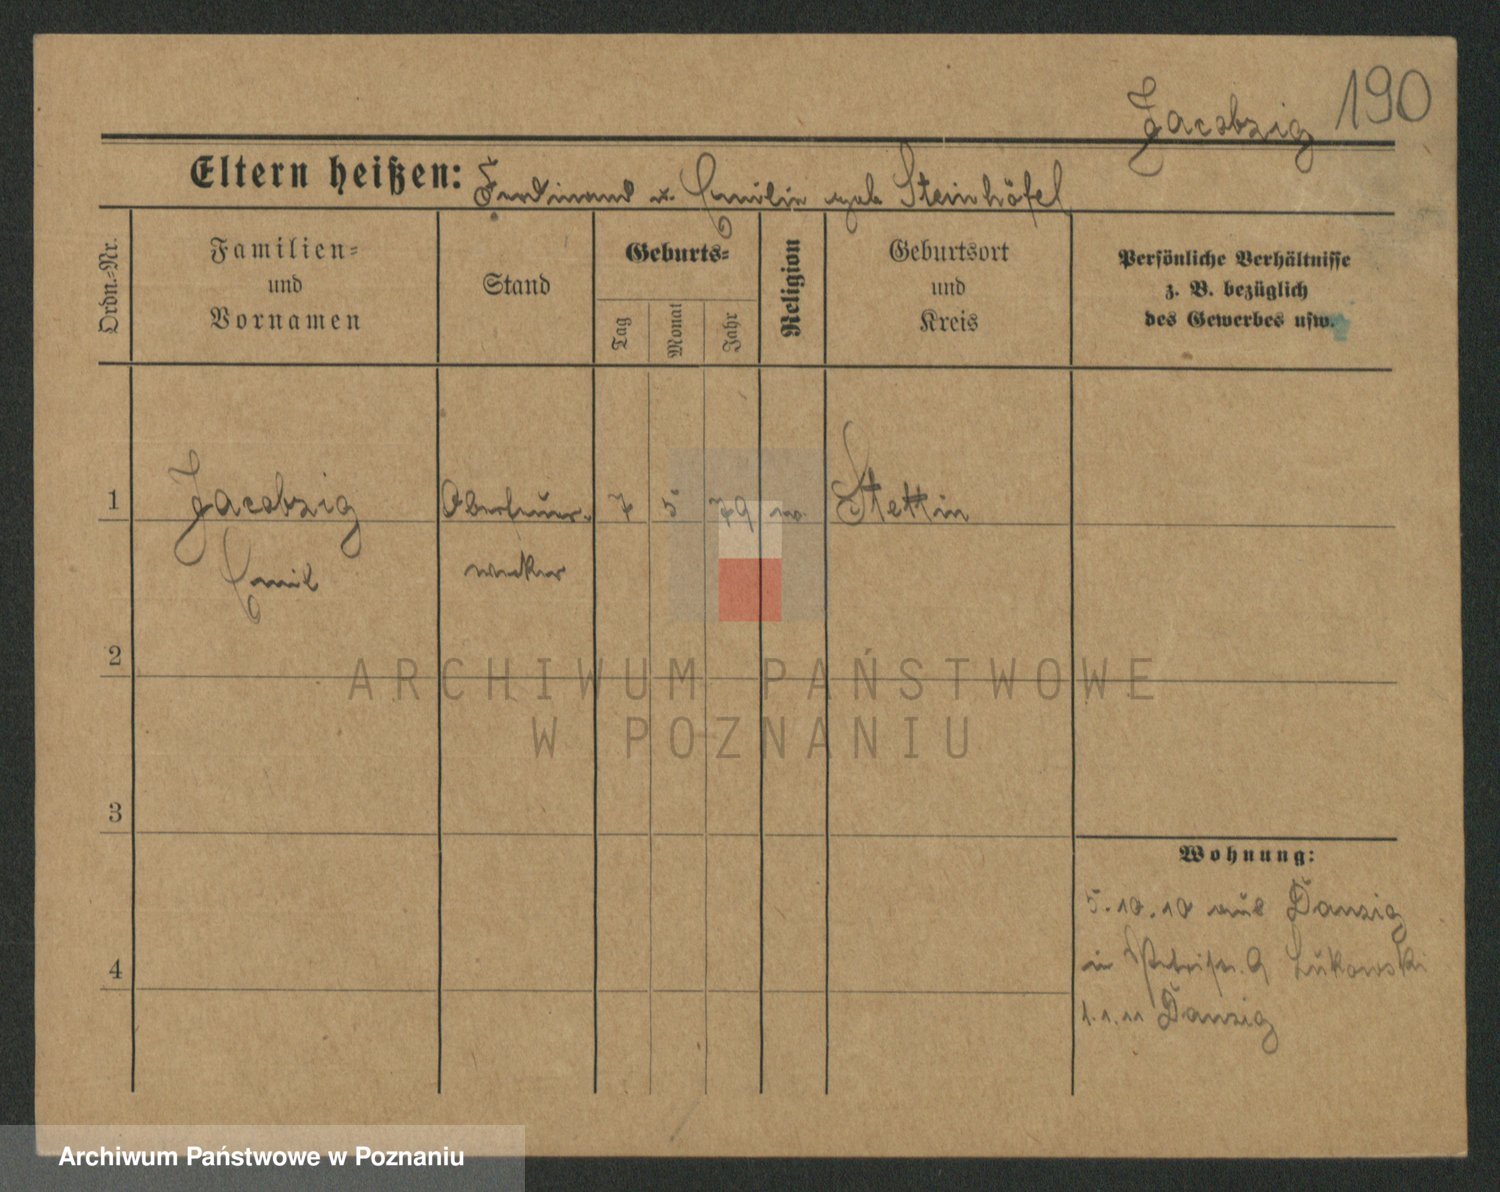 Jacobzig 190
Eltern heißen: Ferdinand u. Emilie geb Steinhöfel
Ordn.-Nr.
Familien-
und
Vornamen
Stand
Geburts-
Tag
Monat
Jahr
Religion
Geburtsort
und
Kreis
Persönliche Verhältnisse
z. B. bezüglich
des Gewerbes usw.
1 Jacobzig Oberfeuer- 7 5 79 ev. Stettin
Emil werker
2
ARCHIWUM PAŃSTWOWE
W POZNANIU
3
Wohnung:
5.10.10 aus Danzig
4
in Petristr. 9 Lukowski
1.1.11 Danzig
Archiwum Państwowe w Poznaniu